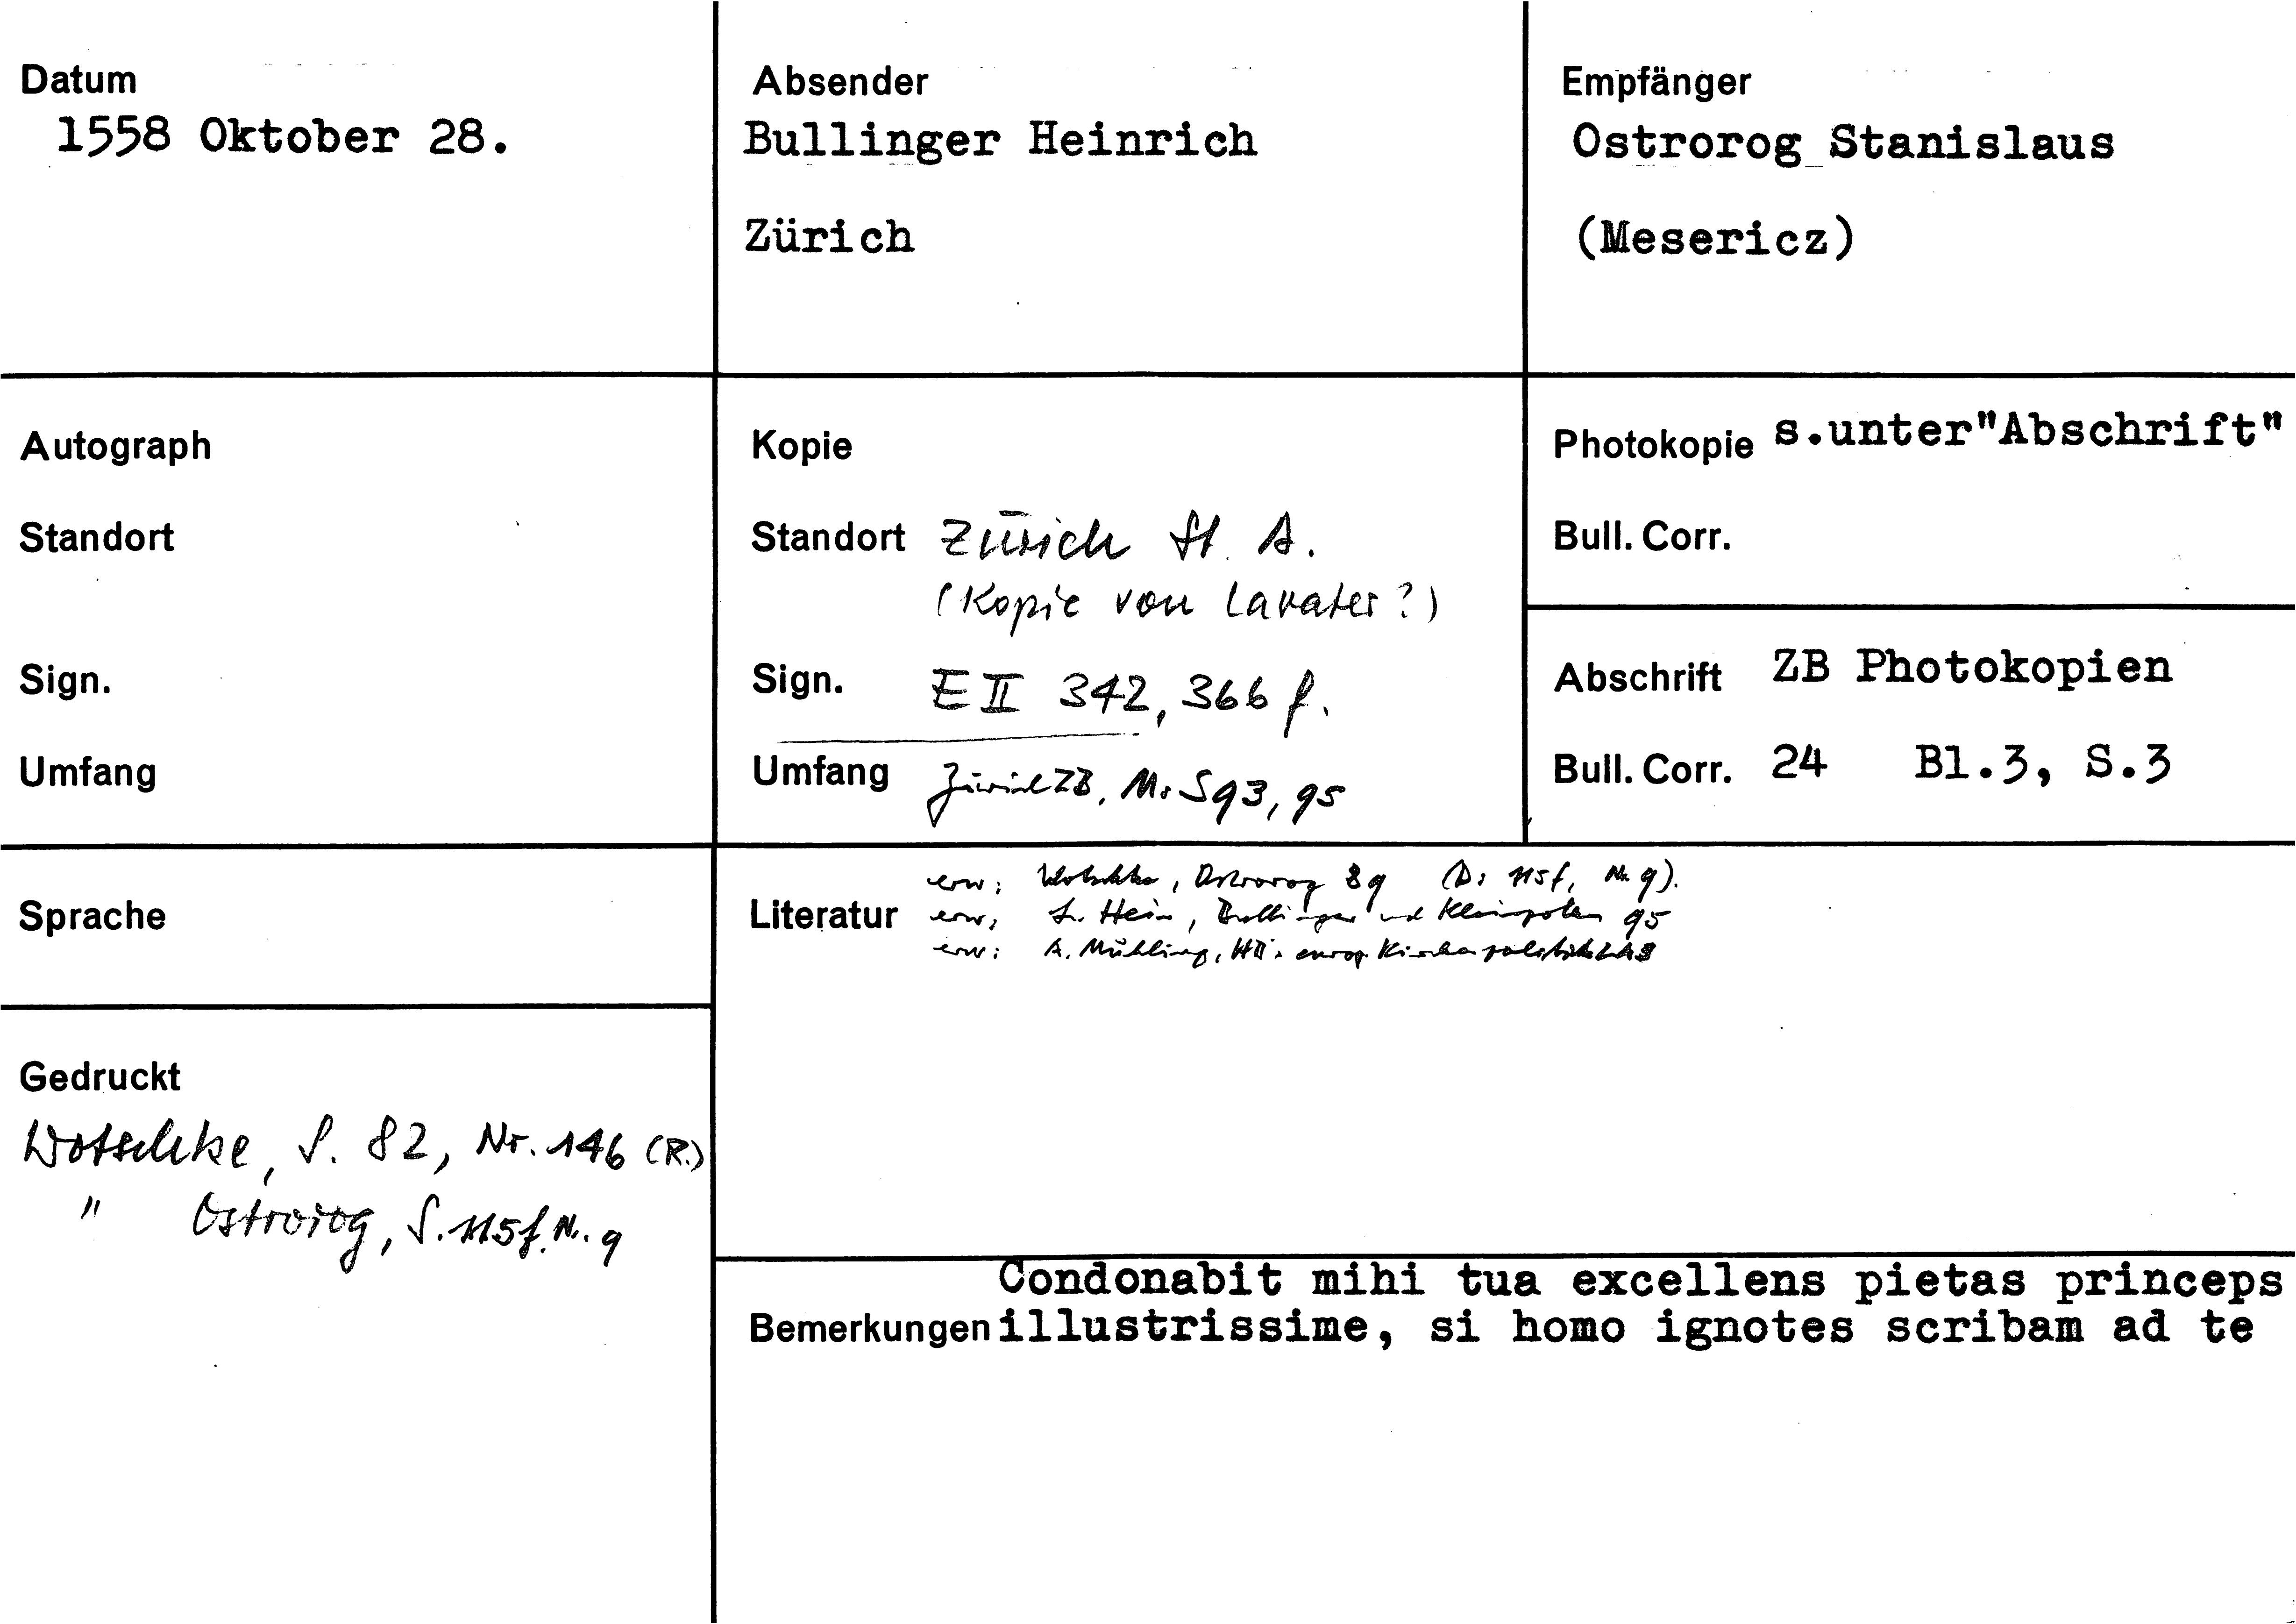 Datum
1558 Oktober 28.
Absender
Bullinger Heinrich
Zürich
Empfänger
Ostrorog Stanislaus
(Mesericz)
Autograph
Standort
Sign.
Umfang
Kopie
Standort Zürich St. A.
(Kopie von Lavater?)
Sign. E II 342, 366 f.
Umfang Zürich ZB, Ms S 93, 95
Photokopie s.unter"Abschrift"
Bull. Corr.
Abschrift ZB Photokopien
Bull. Corr. 24 Bl.3, S.3
Sprache
Literatur
erw: Wotschke, Ostrorog 89 (D: 115f, Nr. 9).
erw: L. Hein, Bullinger und Kleinpolen 95
erw: A. Mühling, HB's europ. Kirchenpolitik
Gedruckt
Wotschke, S. 82, Nr. 146 (R.)
" Ostrorog, S. 115f. Nr. 9
Condonabit mihi tua excellens pietas princeps
Bemerkungen illustrissime, si homo ignotes scribam ad te